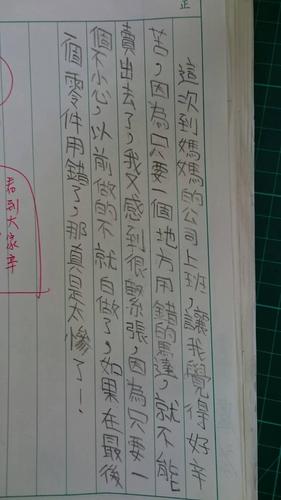 正
這次到媽媽的公司上班,讓我覺得好辛
苦,因為只要一個地方用錯的馬達,就不能
賣出去了,我又感到很緊張,因為只要一
個不小心,以前做的不就自做了,如果在最後
一個零件用錯了,那真是太慘了!
看到大家辛